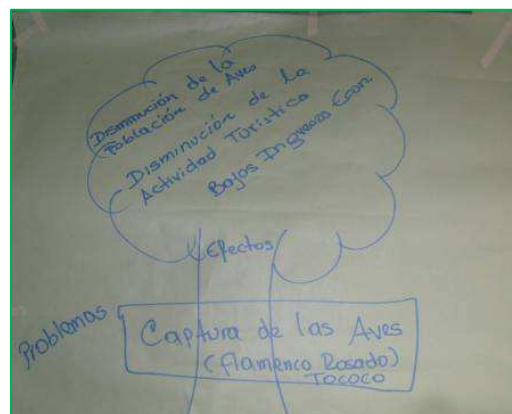 Disminución de la
Población de Aves
Disminución de la
Actividad Turistica
Bajos Ingresos Econ.
Efectos
Problemas
Captura de las Aves
(Flamenco Rosado)
Tococo